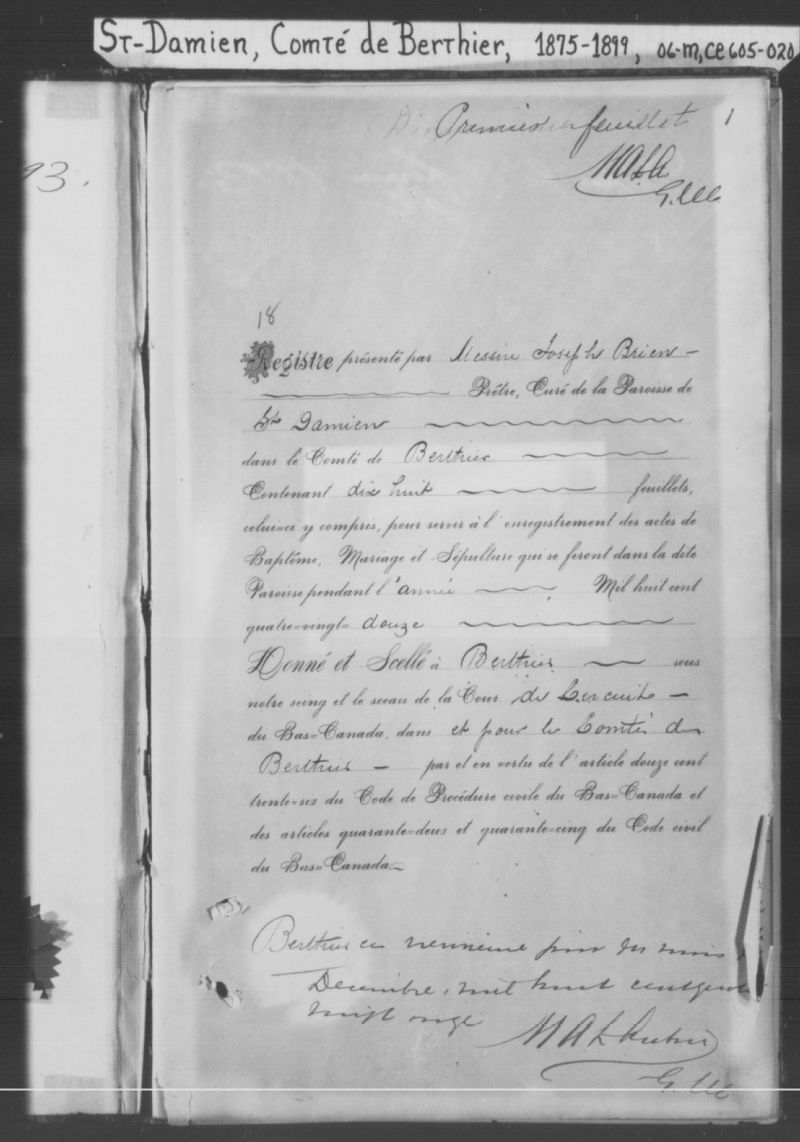 St-Damien, Comté de Berthier, 1875-1899, 06-M,CE605-020
93.
Premier feuillet
1
M A L A
G.CCC
18
Registre présenté par Messire Joseph Brien —
Prêtre, Curé de la Paroisse de
St Damien
dans le Comté de Berthier
Contenant dix huit feuillets,
celui=ci y compris, pour servir à l'enregistrement des actes de
Baptême, Mariage et Sépulture qui se feront dans la dite
Paroisse pendant l'année Mil huit cent
quatre=vingt= douze
Donné et Scellé à Berthier sous
notre seing et le sceau de la Cour de Circuit —
du Bas=Canada, dans et pour le Comté de
Berthier — par et en vertu de l'article douze cent
trente=six du Code de Procédure civile du Bas=Canada et
des articles quarante=deux et quarante=cinq du Code civil
du Bas=Canada
Berthier ce neuvieme jour du mois
Decembre, mil huit cent
vingt onze
M A L
G. CCC